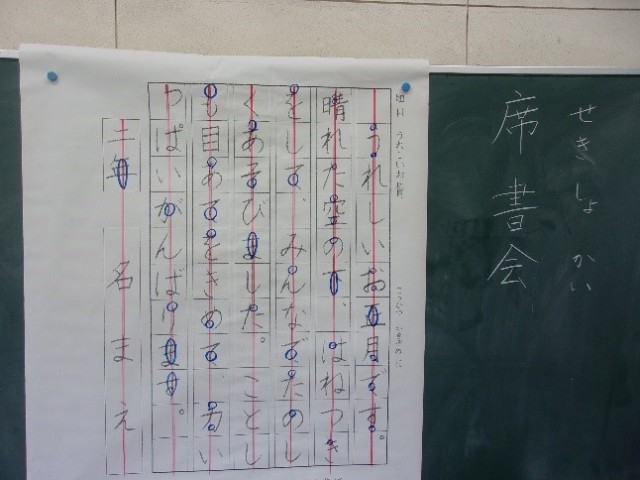 せきしょかい
席書会
うれしいお正月です。
晴れた空の下、はねつき
をして、みんなでたのし
くあそびました。ことし
も目あてをきめて、力い
っぱいがんばります。
名まえ